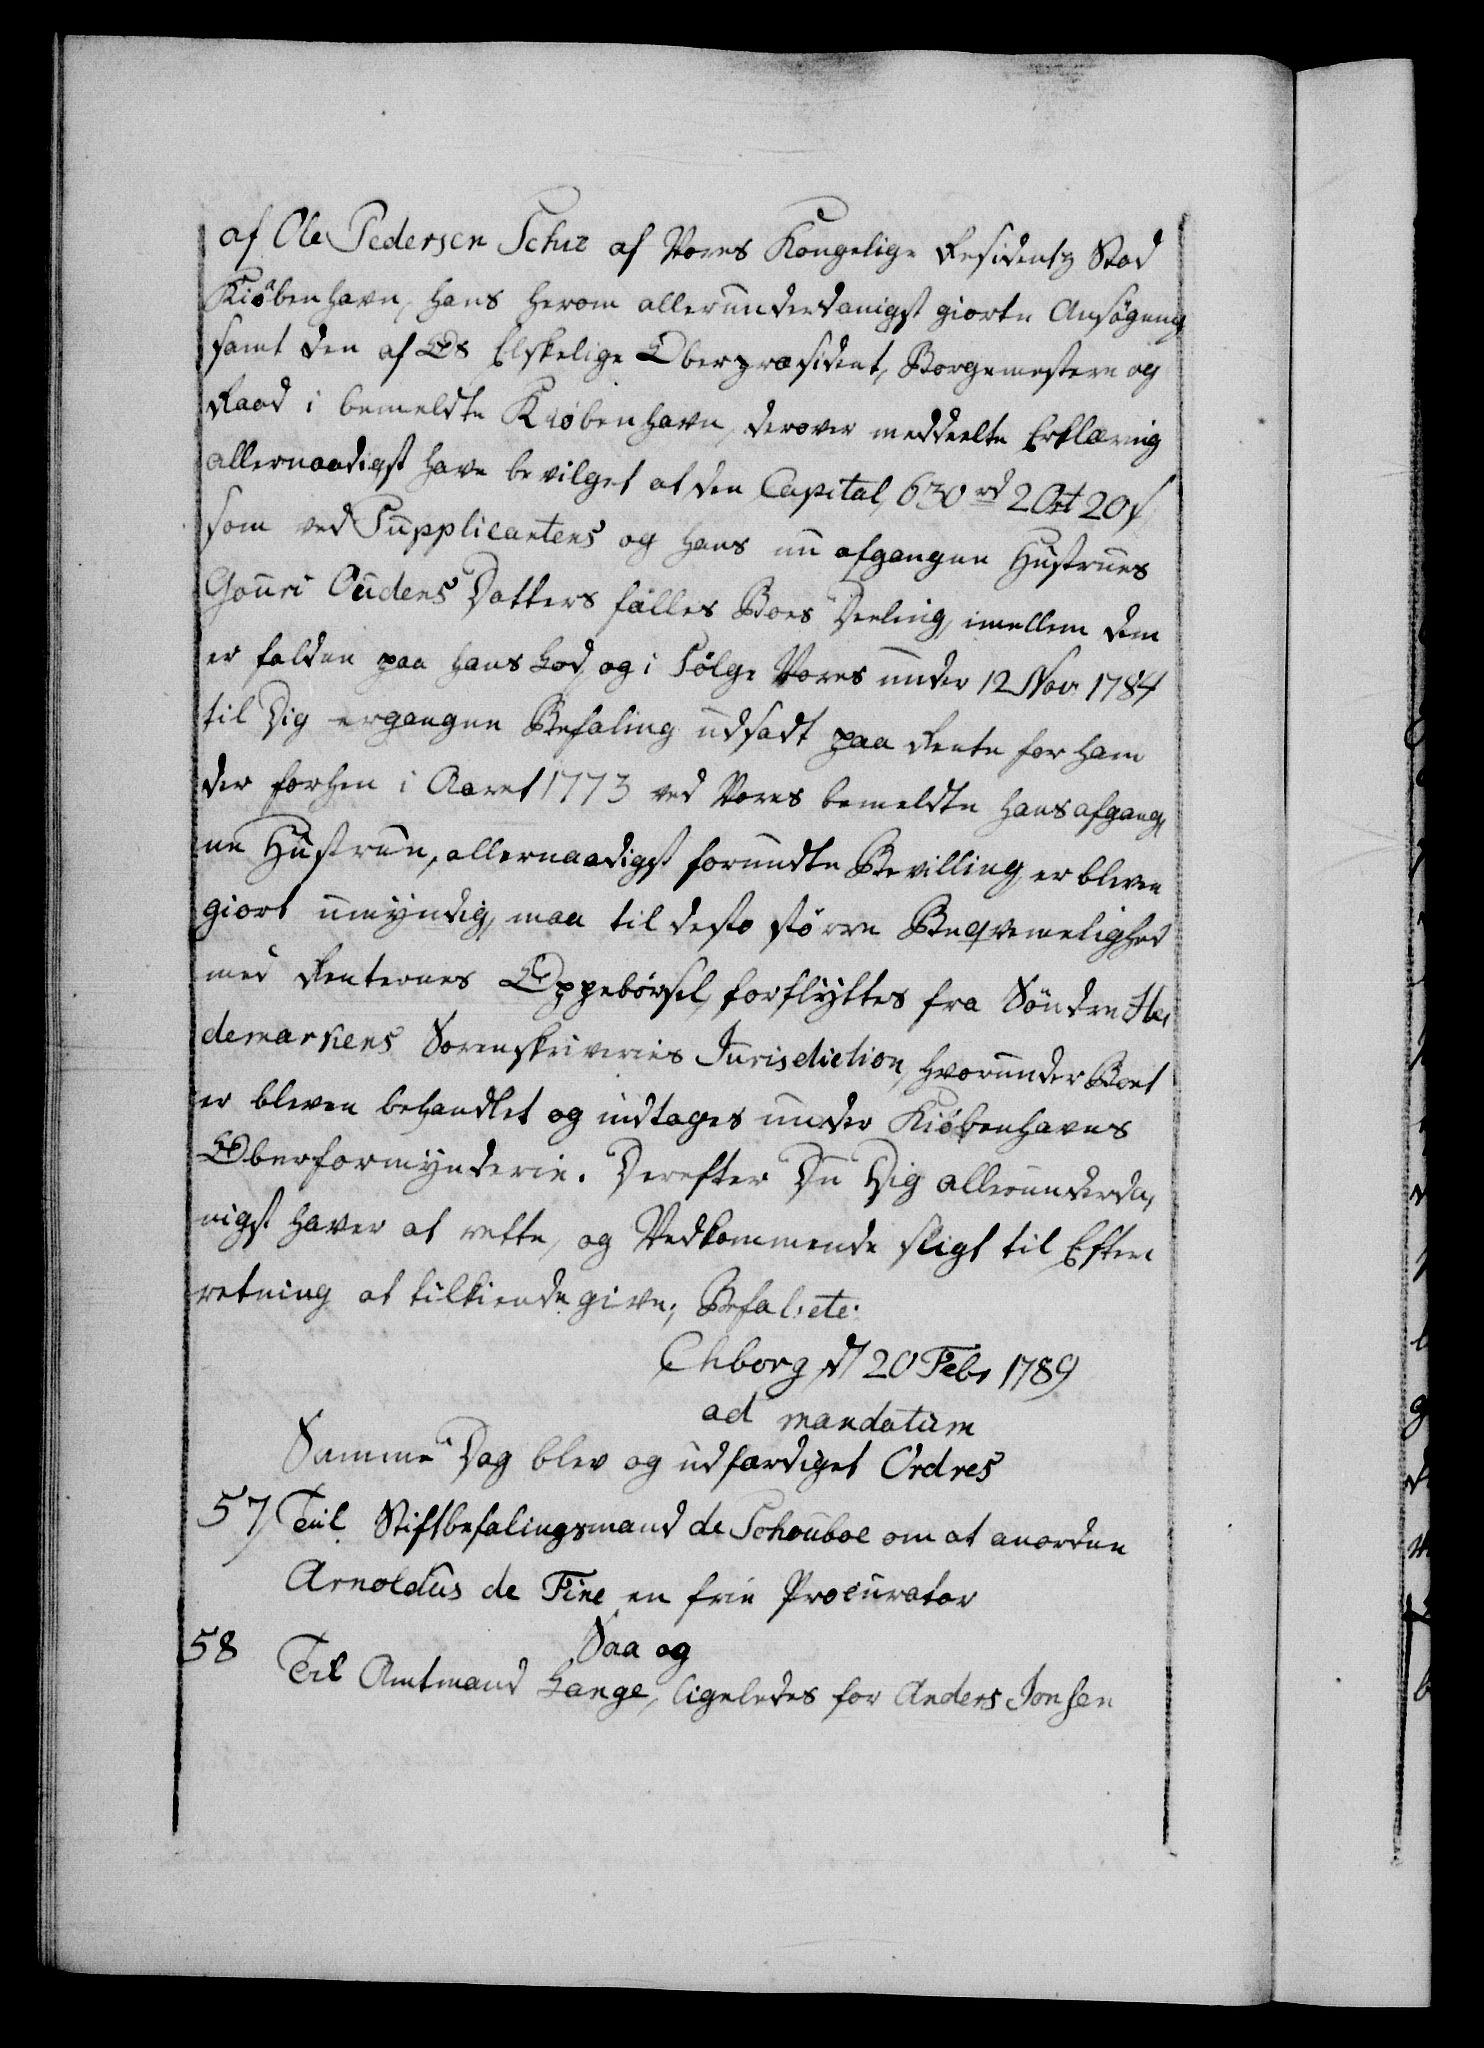 af Ole Pedersen Schie af Vores Kongelige Residentz Stad
Kiöbenhavn, hans herom allerunderdanigst giorte Ansögning
samt den af Os Elskelige Oberpræsident, Borgemestere og
Raad i bemeldte Kiöbenhavn, derover meddeelte Erklæring
allernaadigst have bevilget at den Capital, 630 rd 2 Ort 20 s
som ved Supplicantens og hans nu afgangne Hustrues
Gouri Oudens Datters fælles Boes Deeling, imellem dem
er falden paa hans Lod, og i Fölge Vores under 12 Nov 1784
til Dig ergangne Befaling udsadt paa Rente for ham
der forhen i Aaret 1773 ved Vores bemeldte hans afgang,
ne Hustrue, allernaadigst forundte Bevilling, er bleven
giort umyndig, maa til desto större Beqvemelighed
med Renternes Oppebørsel, forflyttes fra Söndre He,
demarkens Sorenskriveries Jurisdiction, hvorunder Boet
er bleven behandlet og indtages under Kiöbenhavns
Oberformynderie. Derefter Du Dig allerunderda,
nigst haver at rette, og Vedkommende sligt til Efter,
retning at tilkiende give; Befal: etc:
Chborg d 20 Febr 1789
ad mandatum
Samme Dag blev og udfærdiget Ordres
57 Til Stiftbefalingsmand de Schouboe om at anordne
Arnoldus de Fine en frie Procurator
Saa og
58 Til Amtmand Lange, ligeledes for Anders Jonsen